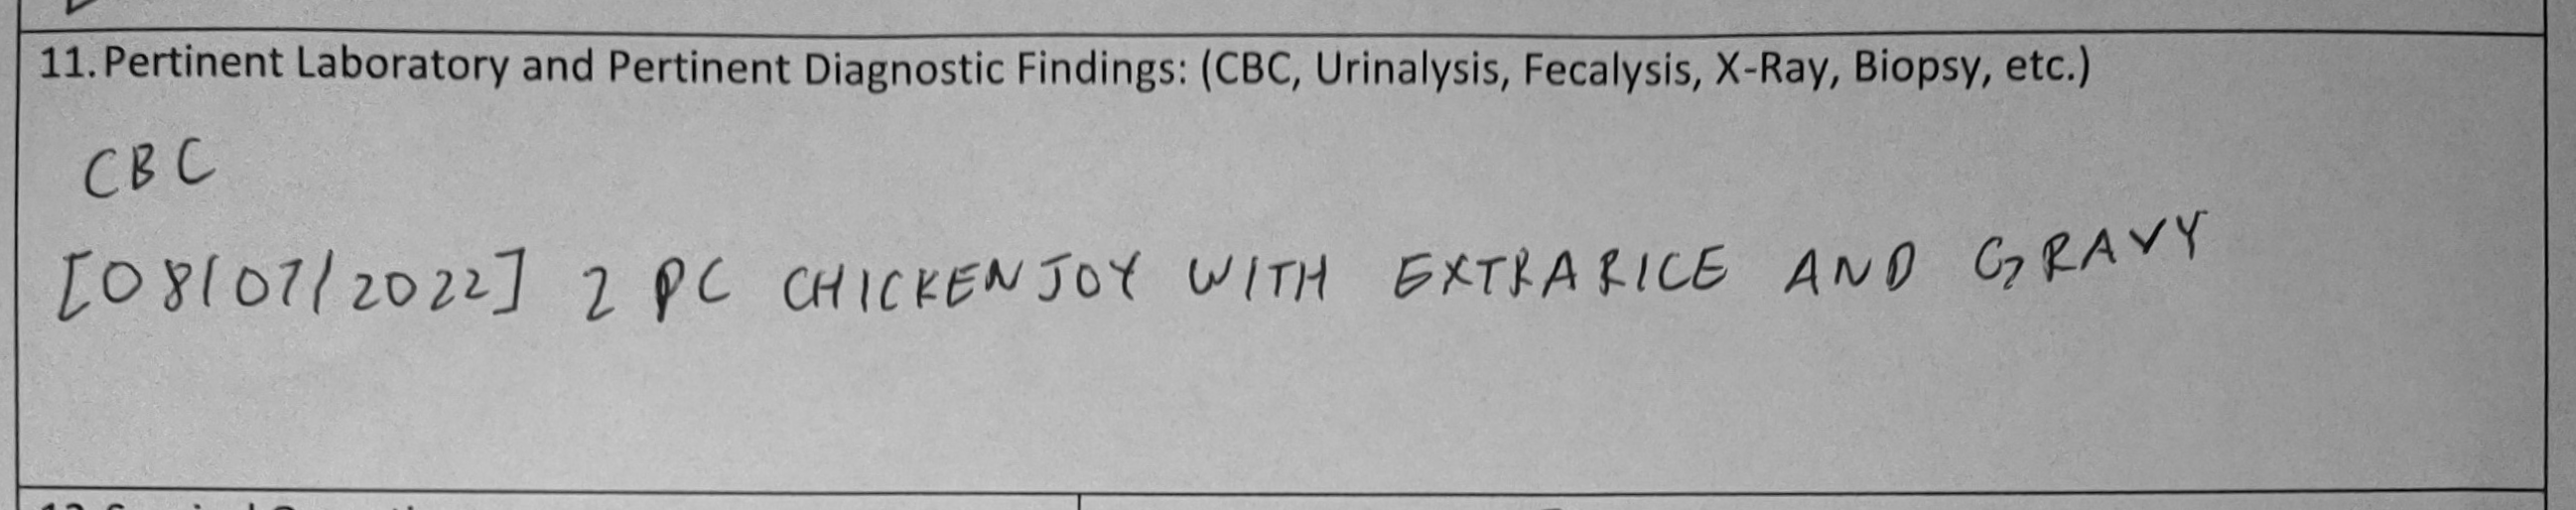 11. Pertinent Laboratory and Pertinent Diagnostic Findings: (CBC, Urinalysis, Fecalysis, X-Ray, Biopsy, etc.)
CBC
[08/07/2022] 2 PC CHICKENJOY WITH EXTRARICE AND GRAVY